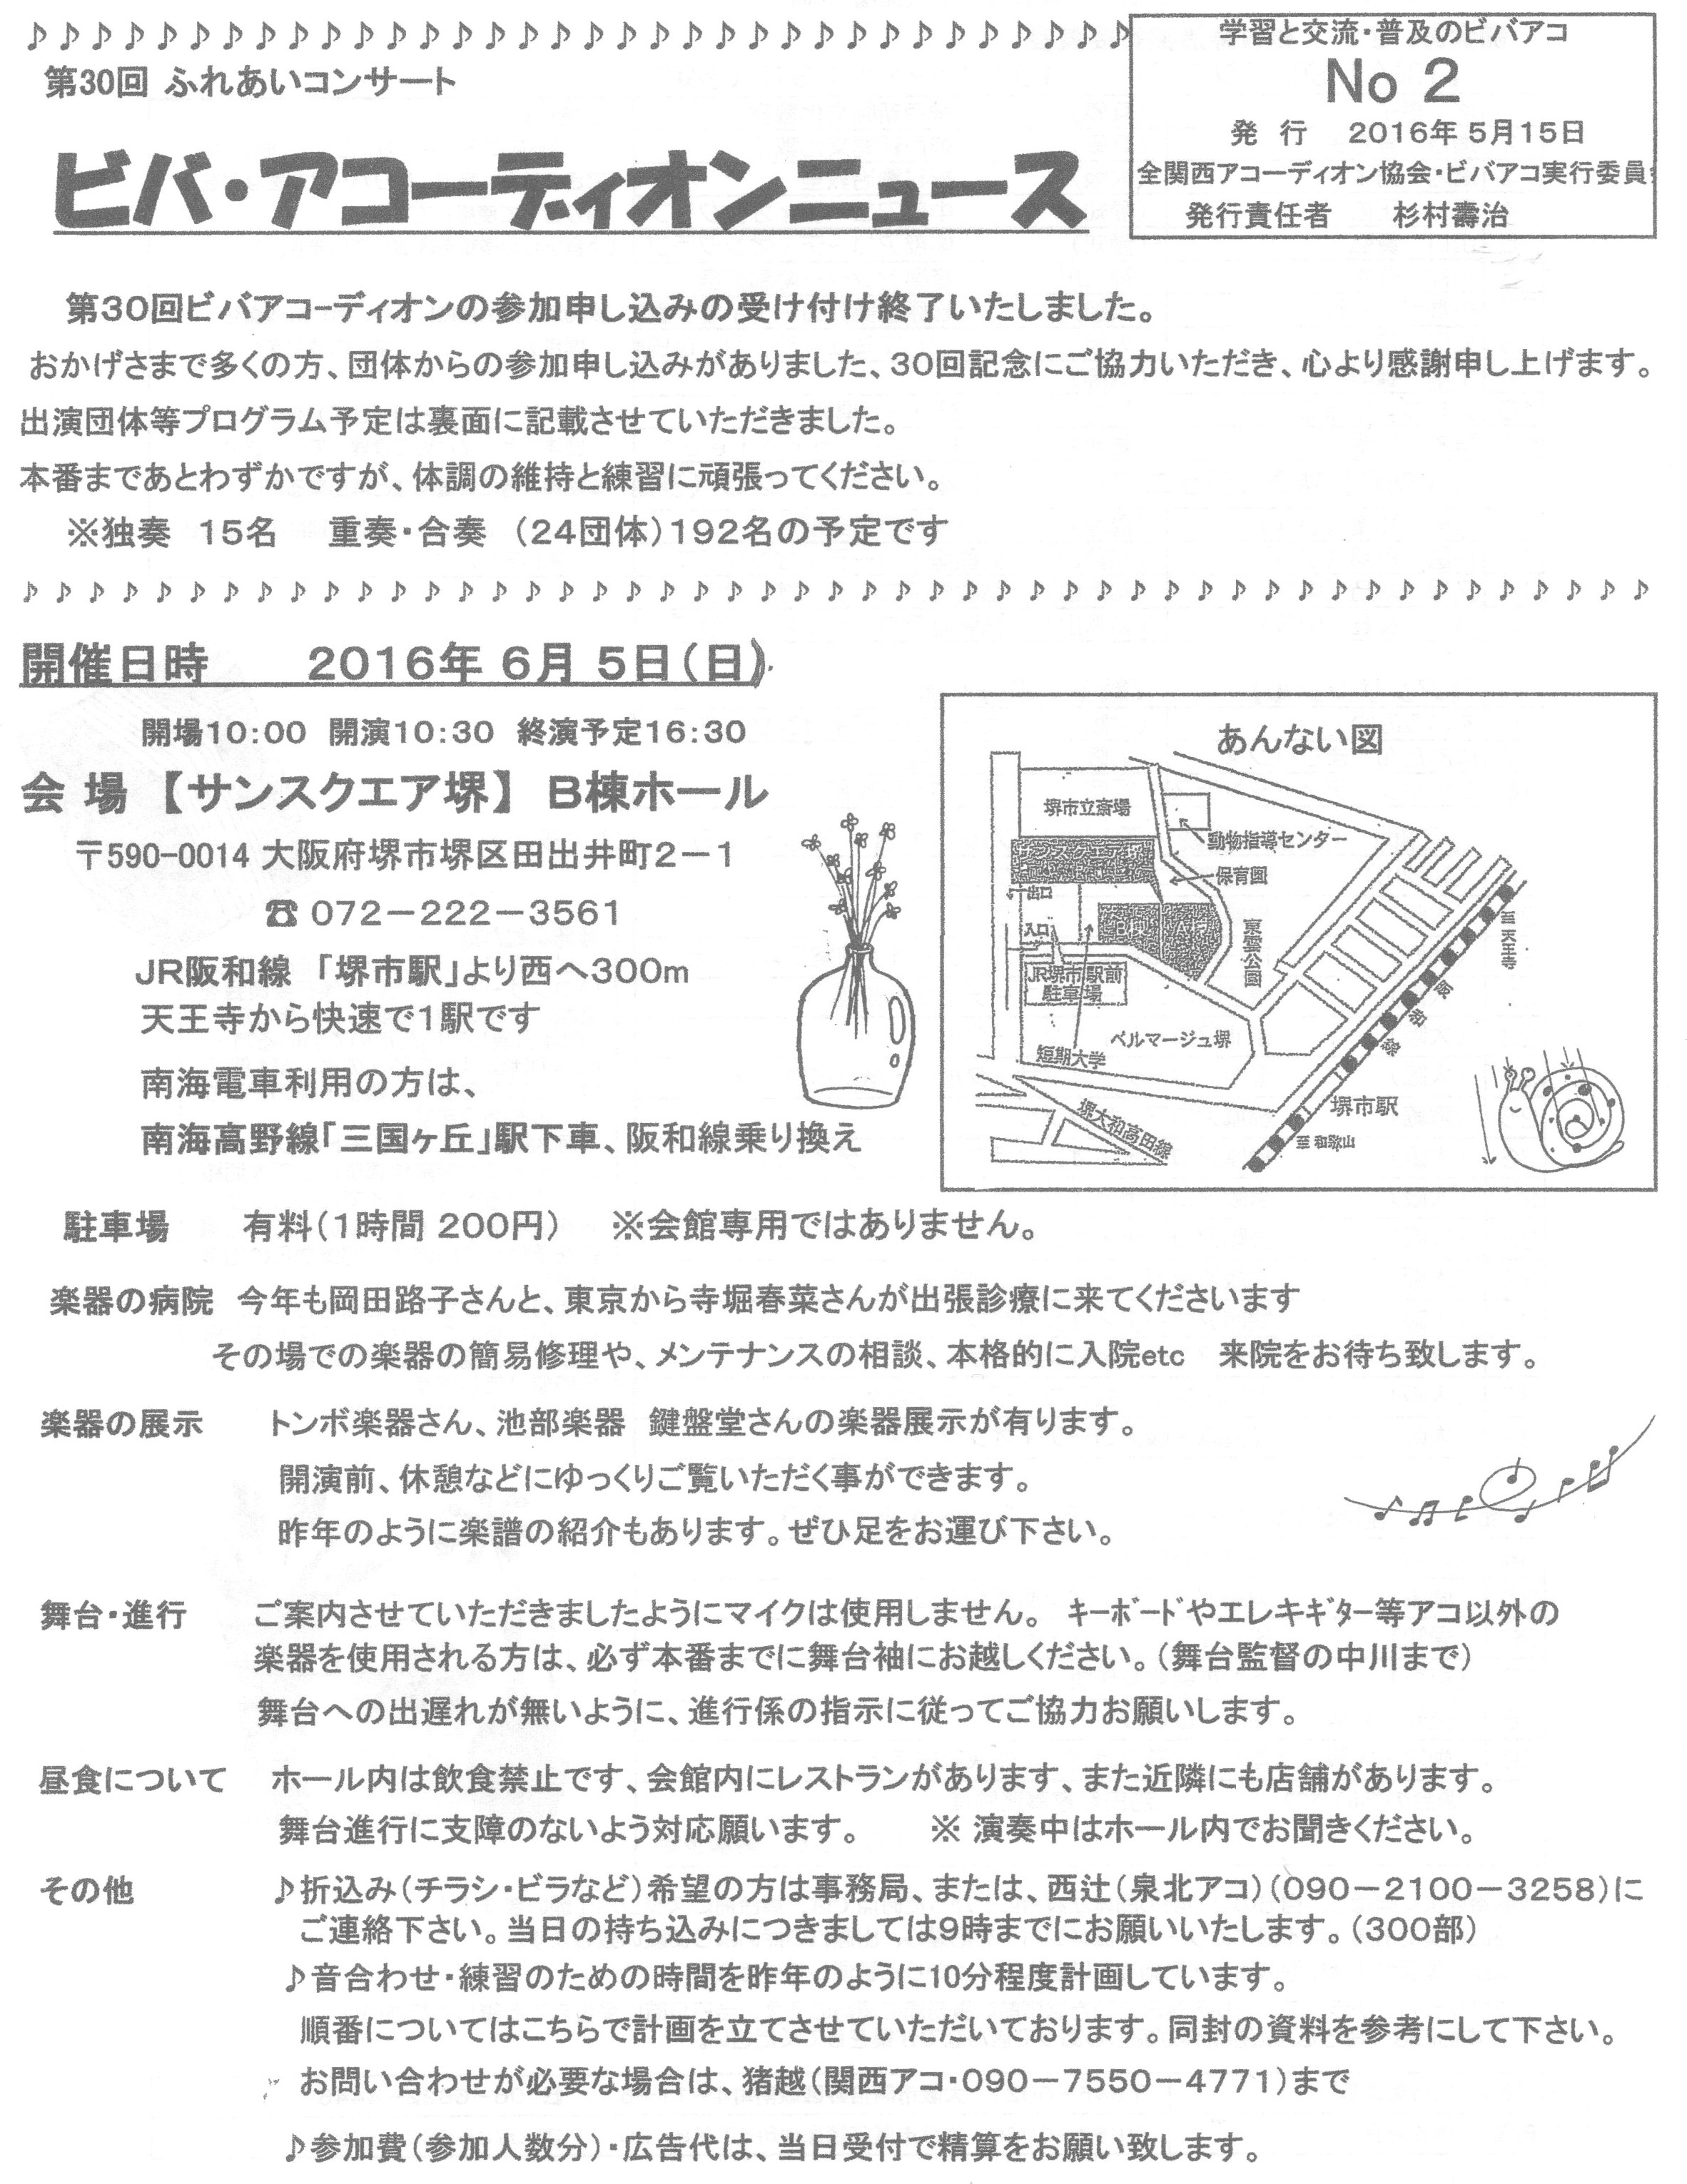 ♪♪♪♪♪♪♪♪♪♪♪♪♪♪♪♪♪♪♪♪♪♪♪♪♪♪♪♪♪♪♪♪♪♪
第30回 ふれあいコンサート
ビバ・アコーディオンニュース
学習と交流・普及のビバアコ
No 2
発 行 2016年 5月15日
全関西アコーディオン協会・ビバアコ実行委員会
発行責任者 杉村壽治
第30回ビバアコーディオンの参加申し込みの受け付け終了いたしました。
おかげさまで多くの方、団体からの参加申し込みがありました、30回記念にご協力いただき、心より感謝申し上げます。
出演団体等プログラム予定は裏面に記載させていただきました。
本番まであとわずかですが、体調の維持と練習に頑張ってください。
※独奏 15名 重奏・合奏 (24団体)192名の予定です
♪♪♪♪♪♪♪♪♪♪♪♪♪♪♪♪♪♪♪♪♪♪♪♪♪♪♪♪♪♪♪♪♪♪♪♪♪♪♪♪♪♪♪♪♪♪♪♪♪
開催日時 2016年 6月 5日(日)
開場10:00 開演10:30 終演予定16:30
会 場 【サンスクエア堺】 B棟ホール
〒590-0014 大阪府堺市堺区田出井町2-1
☎ 072-222-3561
JR阪和線 「堺市駅」より西へ300m
天王寺から快速で1駅です
南海電車利用の方は、
南海高野線「三国ヶ丘」駅下車、阪和線乗り換え
あんない図
堺市立斎場
動物指導センター
サンスクエア堺
保育園
出口
入口
B棟
A棟
東雲公園
JR堺市駅前
駐車場
ベルマージュ堺
短期大学
堺大和高田線
至 天王寺
阪和線
堺市駅
至 和歌山
駐車場 有料(1時間 200円) ※会館専用ではありません。
楽器の病院 今年も岡田路子さんと、東京から寺堀春菜さんが出張診療に来てくださいます
その場での楽器の簡易修理や、メンテナンスの相談、本格的に入院etc 来院をお待ち致します。
楽器の展示 トンボ楽器さん、池部楽器 鍵盤堂さんの楽器展示が有ります。
開演前、休憩などにゆっくりご覧いただく事ができます。
昨年のように楽譜の紹介もあります。ぜひ足をお運び下さい。
舞台・進行 ご案内させていただきましたようにマイクは使用しません。 ｷｰﾎﾞｰﾄﾞやエレキｷﾞﾀｰ等アコ以外の
楽器を使用される方は、必ず本番までに舞台袖にお越しください。(舞台監督の中川まで)
舞台への出遅れが無いように、進行係の指示に従ってご協力お願いします。
昼食について ホール内は飲食禁止です、会館内にレストランがあります、また近隣にも店舗があります。
舞台進行に支障のないよう対応願います。 ※ 演奏中はホール内でお聞きください。
その他 ♪折込み(チラシ・ビラなど)希望の方は事務局、または、西辻(泉北アコ)(090-2100-3258)に
ご連絡下さい。当日の持ち込みにつきましては9時までにお願いいたします。(300部)
♪音合わせ・練習のための時間を昨年のように10分程度計画しています。
順番についてはこちらで計画を立てさせていただいております。同封の資料を参考にして下さい。
お問い合わせが必要な場合は、猪越(関西アコ・090-7550-4771)まで
♪参加費(参加人数分)・広告代は、当日受付で精算をお願い致します。